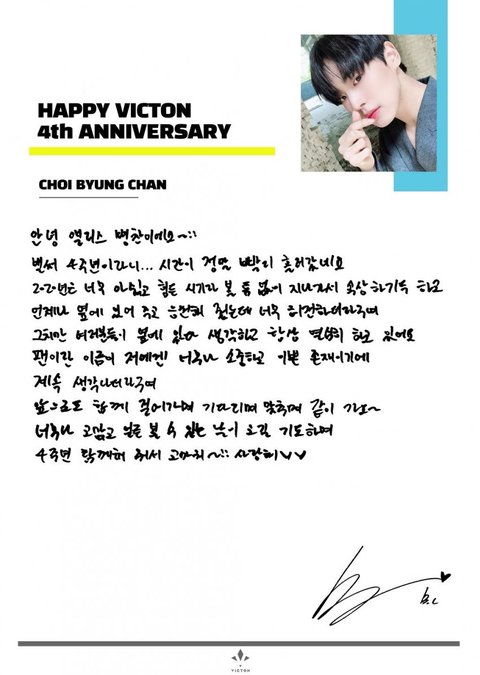 HAPPY VICTON
4th ANNIVERSARY
CHOI BYUNG CHAN
안녕 앨리스 병찬이에요~::
벌써 4주년이라니... 시간이 정말 빨리 흘러갔네요
2020년은 너무 아쉽고 힘든 시기라 볼 틈 없이 지나가서 속상하기도 하고
언제나 옆에 있어 주고 응원해 줬는데 너무 허전하더라구여
그치만 여러분들이 옆에 있다 생각하고 항상 열심히 하고 있어요
팬이란 이름이 저에겐 너무나 소중하고 이쁜 존재이기에
계속 생각나더라구여
앞으로도 함께 걸어가며 기다리며 맞추며 같이 가요~
너무나 고맙고 얼른 볼 수 있는 날이 오길 기도하며
4주년 함께해 줘서 고마워~:: 사랑해♡♡
B.C
VICTON